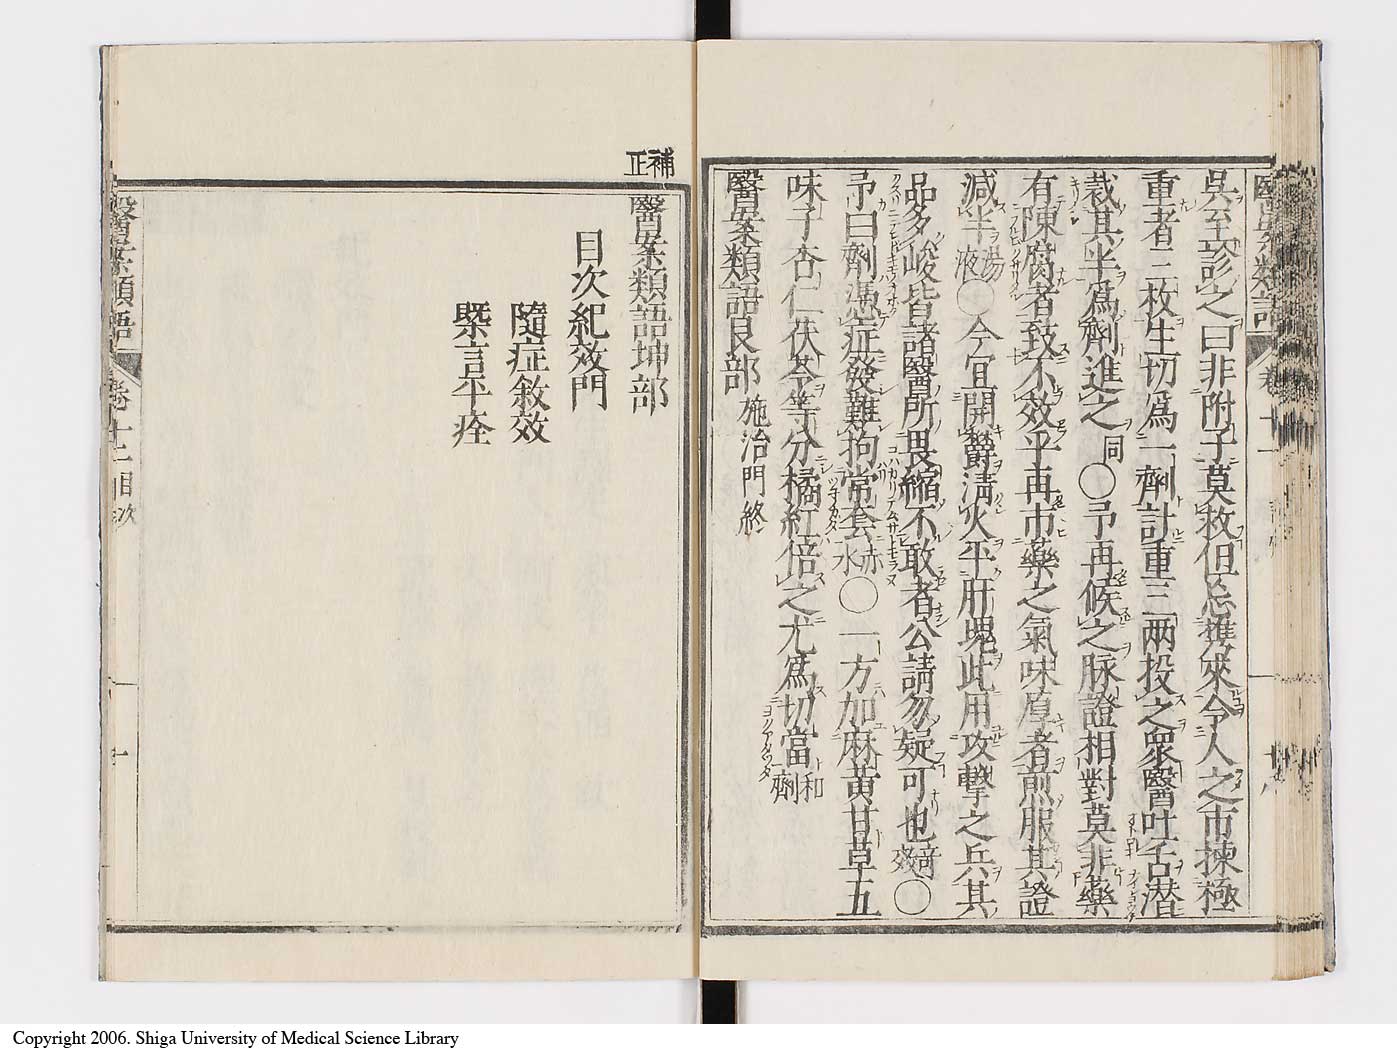 醫案類語 卷十一 十八
呉至診之曰非附子莫救但忌攜來令人之市揀極
重者三枚生切爲一劑計重三两投之衆醫吐舌潜
裁其半爲劑進之同〇予再候之脉證相對莫非藥
有陳腐者致不效乎再市藥之氣味厚者煎服其證
減半湯液〇今宜開鬱淸火平肝塊此用攻擊之兵其
品多峻皆諸醫所畏縮不敢者公請勿疑可也奇效〇
予曰劑憑症發難拘常套赤水〇一方加麻黄甘草五
味子杏仁伏苓等分橘紅倍之尤爲切當和劑
醫案類語艮部 施治門終
補正
醫案類語坤部
目次紀效門
隨症敘效
槩言平痊
醫案類語 卷十二目次 一
Copyright 2006. Shiga University of Medical Science Library